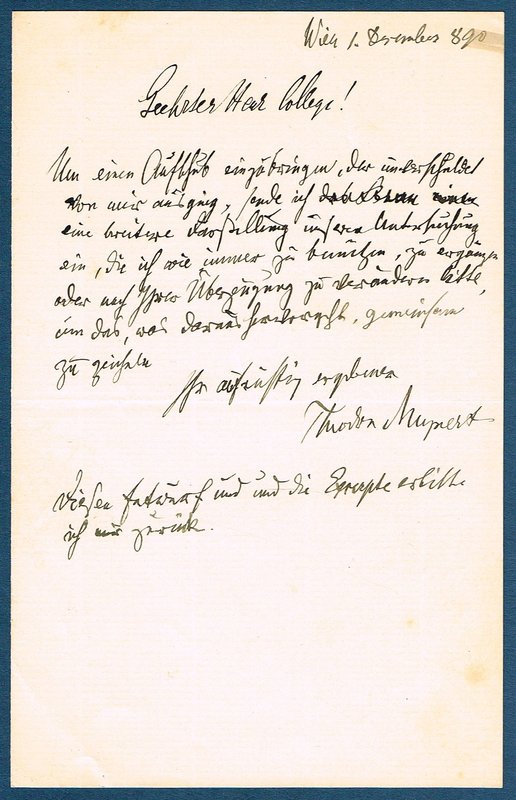 Wien 1. December 890
Geehrter Herr College!
Um einen Aufschub einzubringen, der unverschuldet
von mir ausging, sende ich
eine breitere Darstellung unserer Untersuchung
ein, die ich wie immer zu benützen, zu ergänzen
oder nach Ihrer Überzeugung zu verändern bitte,
um das, was daraus hervorgeht, gemeinsam
zu zeichnen
Ihr aufrichtig ergebener
Theodor
Diesen Entwurf und und die erbitte
ich mir zurück.